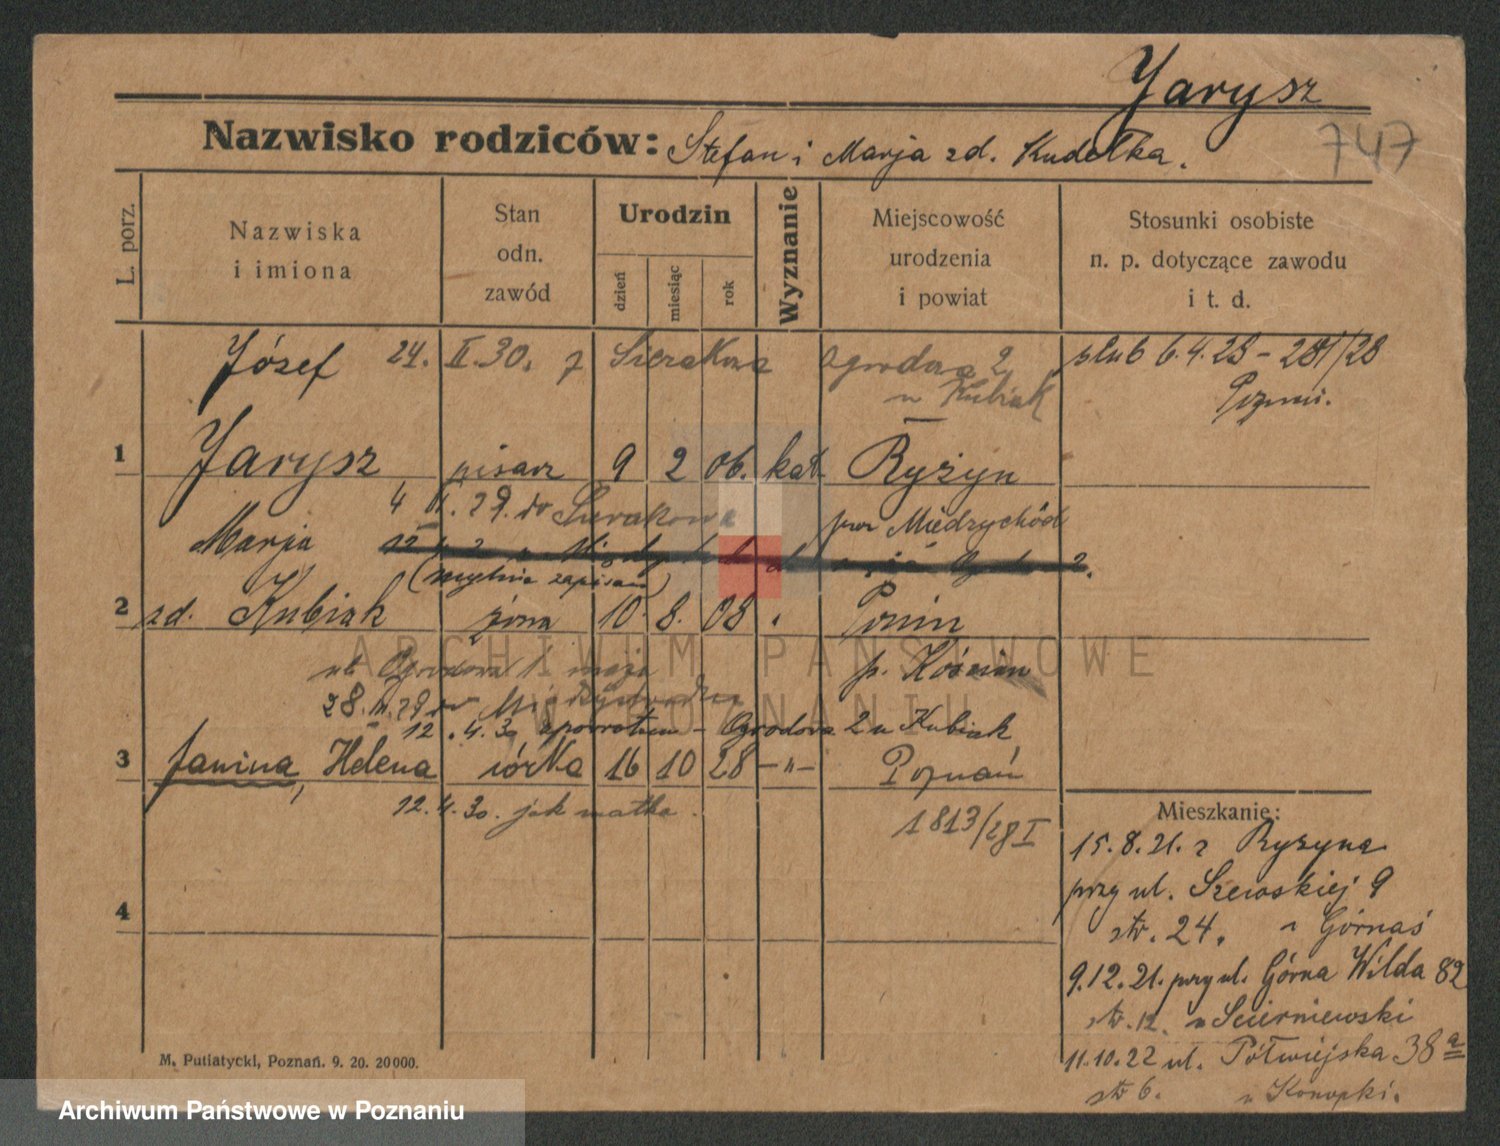 Jarysz
747
Nazwisko rodziców: Stefan i Marja zd. Kudełka.
L. porz.
Nazwiska
i imiona
Stan
odn.
zawód
Urodzin
dzień
miesiąc
rok
Wyznanie
Miejscowość
urodzenia
i powiat
Stosunki osobiste
n. p. dotyczące zawodu
i t. d.
Józef 24. II. 30. z Sierakowa Ogrodowa 2
u Kubiak
ślub 6.4.28 - 281/28
Pozn.
1 Jarysz pisarz 9 2 06. kat. Ryżyn
4 . 29. do Sierakowa pow Międzychód
Marja
(mylnie zapisano)
2 zd. Kubiak żona 10. 8. 08 Ponin
p. Kościan
ul. Ogrodowa 1 m
28. . 29 do Międzychodu
12. 4. 30 zpowrotem - Ogrodowa 2 u Kubiak
3 Janina, Helena córka 16 10 28 -"- Poznań
12. 4. 30. jak matka.
1813/28 I
4
Mieszkanie:
15. 8. 21. z Ryżyna
przy ul. Szewskiej 9
str. 24. u Górnaś
9.12.21. przy ul. Górna Wilda 82
str. 12. u Scierniewski
11.10.22 ul. Półwiejska 38 a
str 6. u Konopki.
M. Putiatycki, Poznań. 9. 20. 20000.
ARCHIWUM PAŃSTWOWE
W POZNANIU
Archiwum Państwowe w Poznaniu